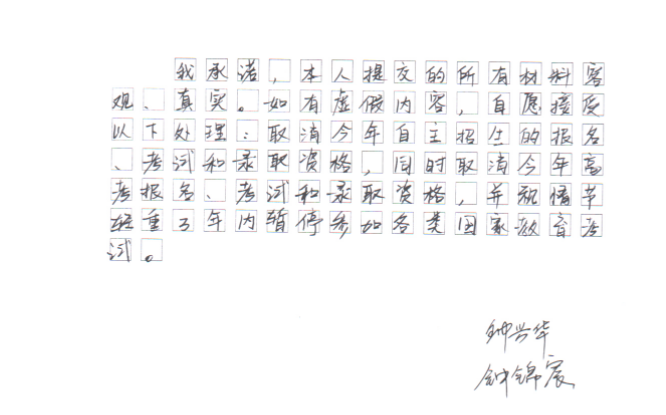 我承诺，本人提交的所有材料客
观、真实。如有虚假内容，自愿接受
以下处理：取消今年自主招生的报名
、考试和录取资格，同时取消今年高
考报名、考试和录取资格，并视情节
轻重3年内暂停参加各类国家教育考
试。
钟兴华
钟锦宸